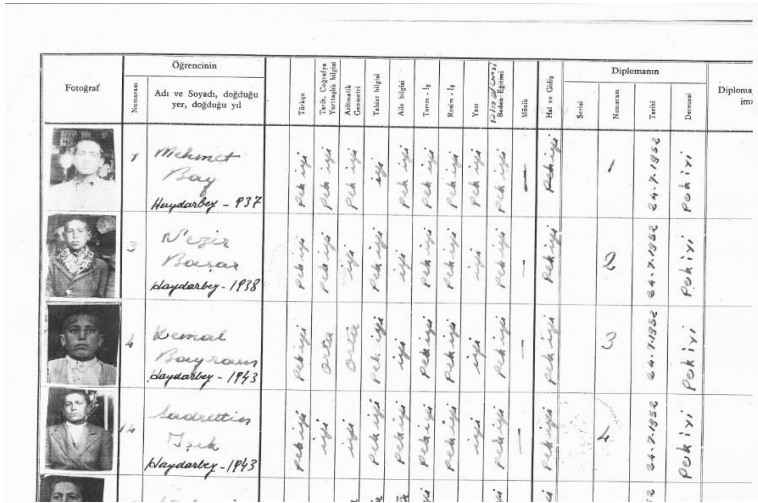 Fotoğraf
Öğrencinin
Numarası
Adı ve Soyadı, doğduğu
yer, doğduğu yıl
Türkçe
Tarih, Coğrafya
Yurttaşlık bilgisi
Aritmetik
Geometri
Tabiat bilgisi
Aile bilgisi
Tarım - İş
Resim - İş
Yazı
Beden Eğitimi
Müzik
Hal ve Gidiş
Diplomanın
Serisi
Numarası
Tarihi
Derecesi
Diploma
1
Mehmet
Bay
Haydarbey - 937
Pek iyi
Pek iyi
Pek iyi
iyi
Pek iyi
Pek iyi
Pek iyi
Pek iyi
Pek iyi
—
Pek iyi
1
24-7-1952
Pekiyi
3
Nezir
Başar
Haydarbey - 1938
Pek iyi
Pek iyi
iyi
Pek iyi
iyi
Pek iyi
Pek iyi
iyi
Pek iyi
—
Pek iyi
2
24-7-1952
Pekiyi
4
Kemal
Bayram
Haydarbey - 1943
Pek iyi
orta
orta
Pek iyi
iyi
Pek iyi
Pek iyi
iyi
Pek iyi
—
Pek iyi
3
24-7-1952
Pekiyi
14
Sadrettin
Işık
Haydarbey - 1943
Pek iyi
iyi
iyi
Pek iyi
Pek iyi
Pek iyi
Pek iyi
iyi
Pek iyi
—
Pek iyi
4
24-7-1952
Pekiyi